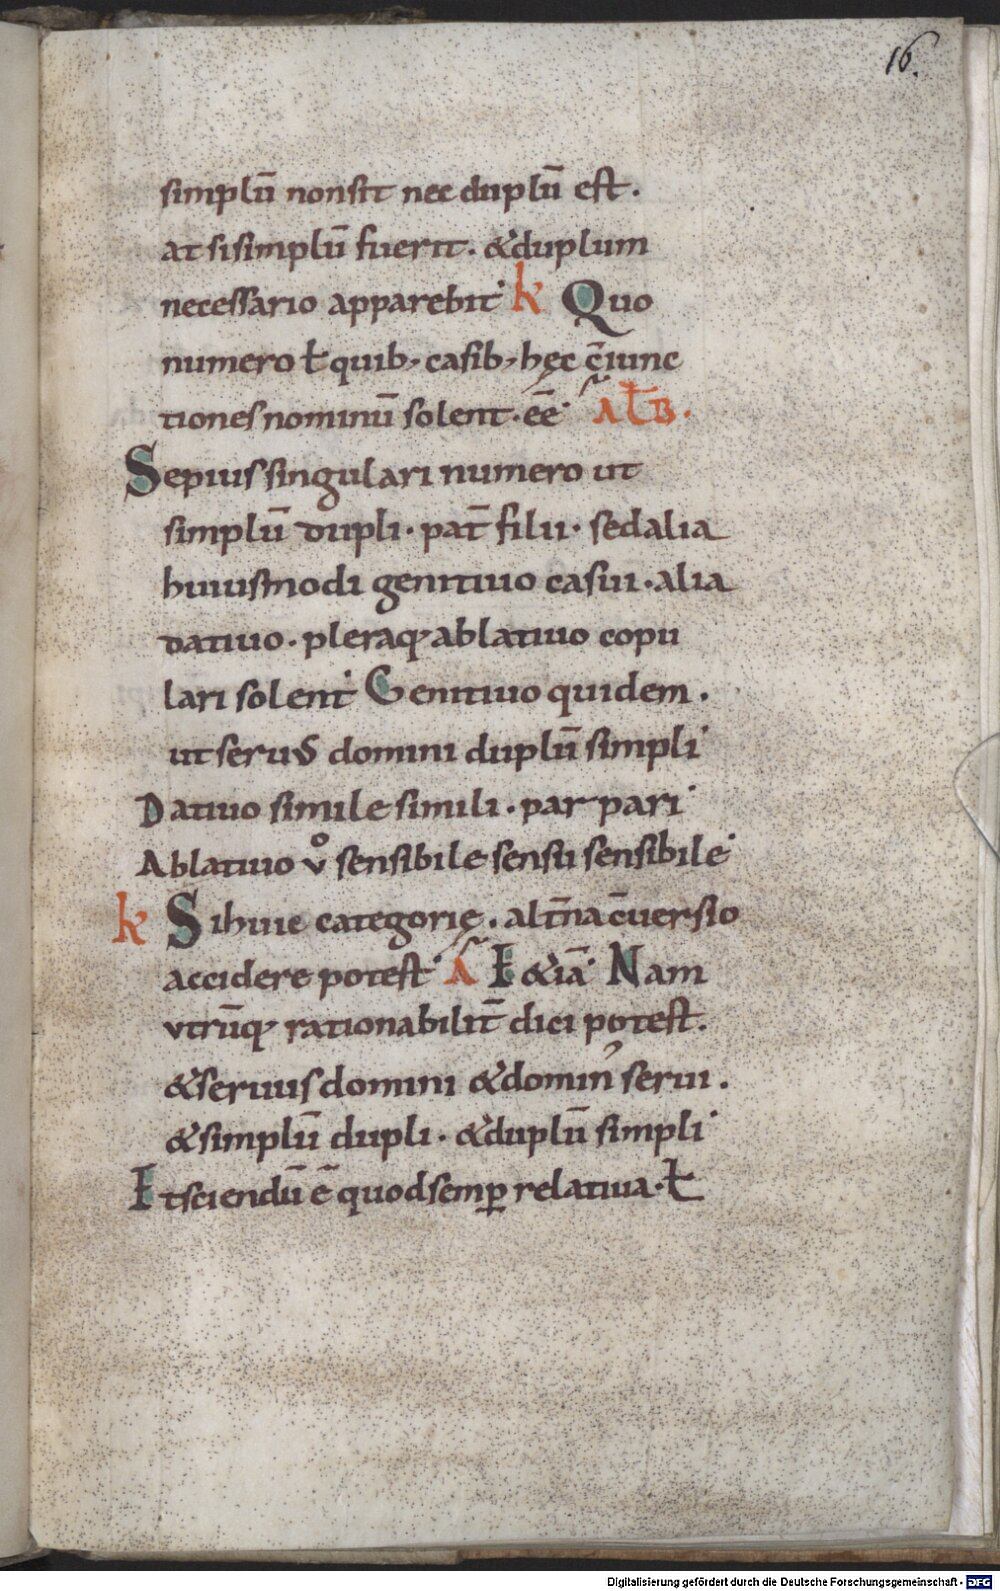 16.
simplū non sit nec duplū est.
at si simplū fuerit. & duplum
necessario apparebit K Quo
numero ł quib; casib; hęc c̄iunc
tiones nominū solent. eē A ł B.
Sepius singulari numero ut
simplū dupli. pat̄ filii. sed alia
huiusmodi genitiuo casui. alia
datiuo. pleraq; ablatiuo copu
lari solent Genitiuo quidem.
ut seruus domini duplū simpli
Datiuo simile simili. par pari
Ablatiuo v̊ sensibile sensu sensibile
K Si huic categorię. alt̄na c̄uersio
accidere potest A E &iā Nam
vtrūq; rationabilit̄ dici potest.
& seruus domini & domin' serui.
& simplū dupli. & duplū simpli
Et sciendū ē quod semꝑ relatiua. ł
Digitalisierung gefördert durch die Deutsche Forschungsgemeinschaft - DFG